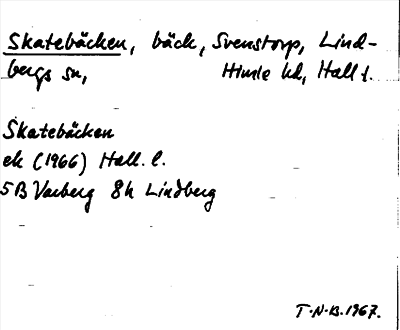 Skatebäcken, bäck, Svenstorp, Lind-
bergs sn, Himle hd, Hall l.
Skatebäcken
ek (1966) Hall. l.
5B Varberg 8h Lindberg
T.N.B. 1967.